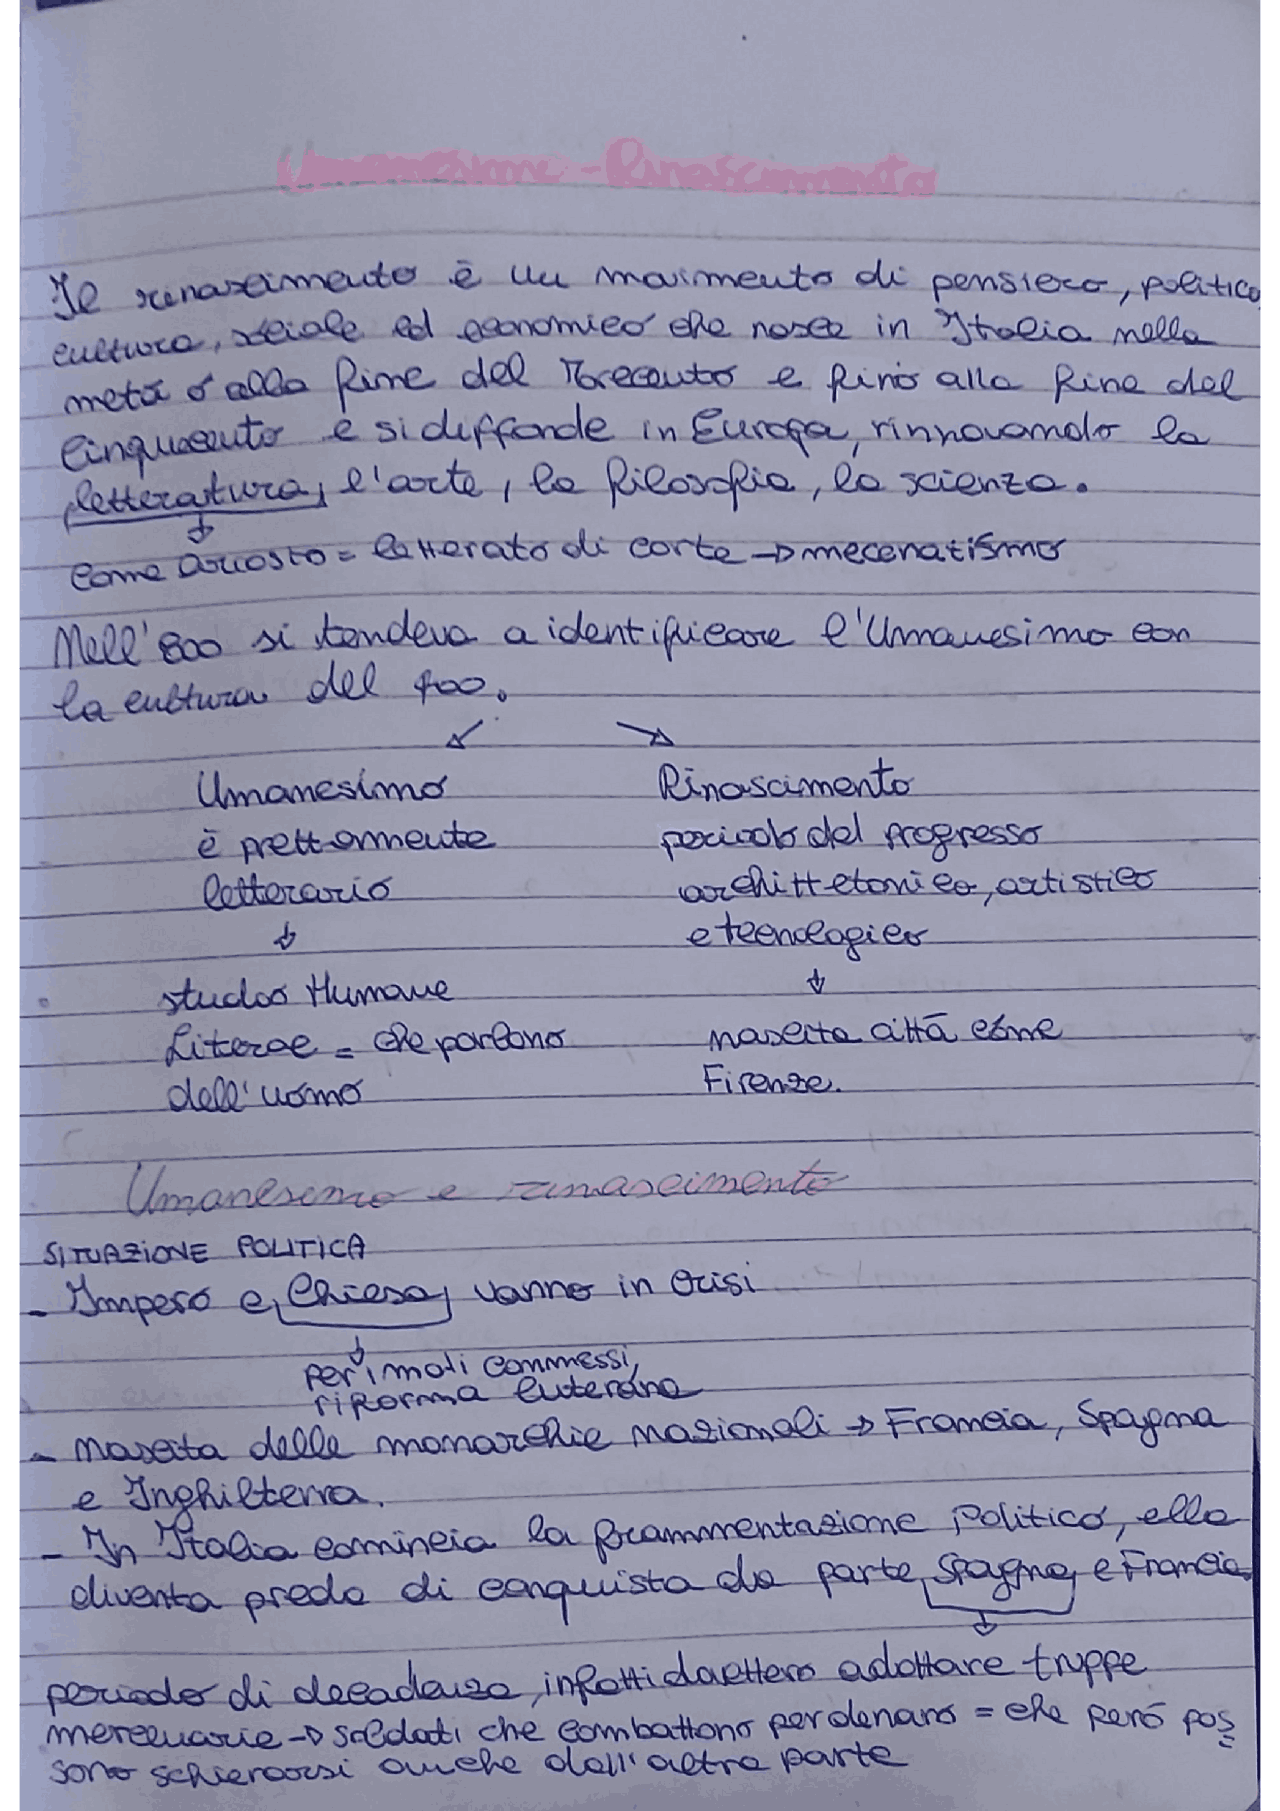 Umanesimo - Rinascimento
Il rinascimento è un movimento di pensiero, politico,
cultura, sociale ed economico che nasce in Italia nella
metà o alla fine del Trecento e finò alla fine del
Cinquecento e si diffonde in Europa, rinnovando la
letteratura, l'arte, la filosofia, la scienza.
↓
come Ariosto = letterato di corte → mecenatismo
Nell'800 si tendeva a identificare l'Umanesimo con
la cultura del 400.
↙ ↘
Umanesimo
è prettamente
letterario
↓
studoo Humane
Literae = che parlano
dell'uomo
Rinascimento
periodo del progresso
archittetonico, artistico
e tecnologico
↓
nascita città come
Firenze.
Umanesimo e rinascimento
SITUAZIONE POLITICA
- Impero e Chiesa vanno in crisi
↓
per i mali commessi,
riforma luterana
- nascita delle monarchie nazionali → Francia, Spagna
e Inghilterra.
- In Italia comincia la frammentazione politica, ella
diventa preda di conquista da parte Spagna e Francia
↓
periodo di decadenza, infatti dovettero adottare truppe
mercenarie → soldati che combattono per denaro = che però pos=
sono schierarsi anche dall'altra parte